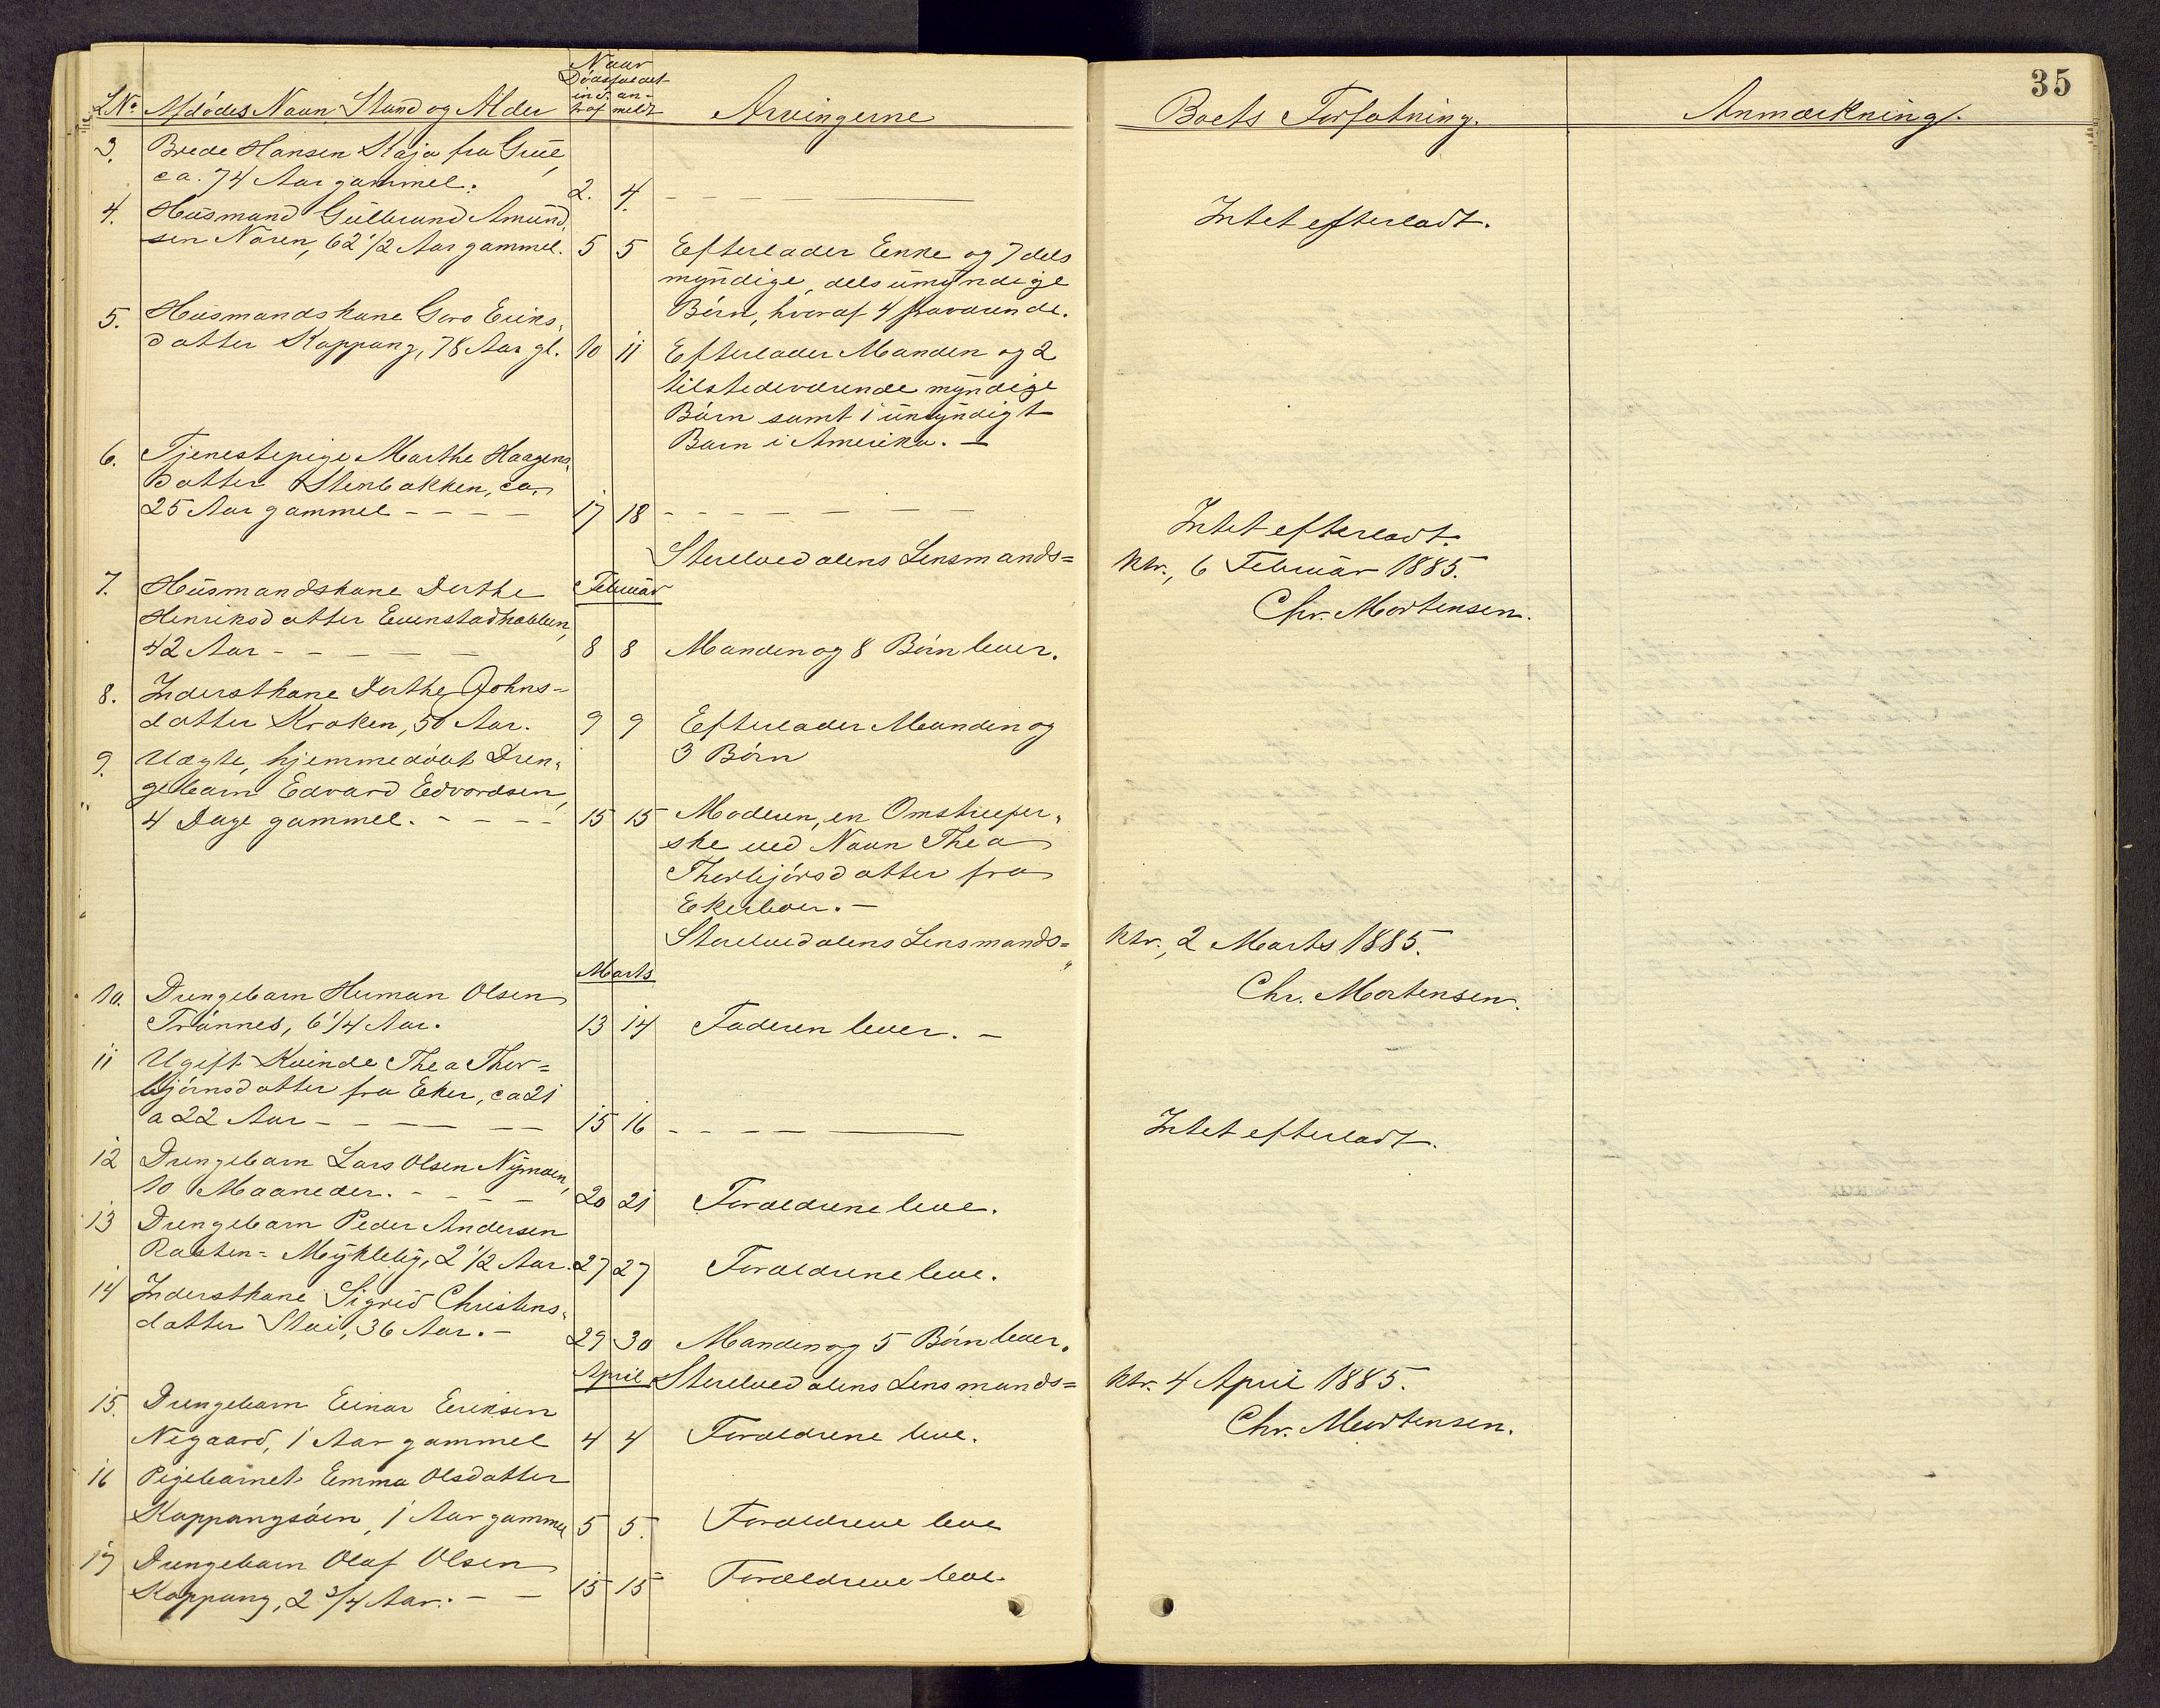 35
LNo Afdødes Navn, Stand og Alder Naar Dødsfaldet indtraf anmeldt Arvingerne Boets Forfatning. Anmærkning.
3. Brede Hansen Kaja fra Grue,
ca. 74 Aar gammel. 2. 4. — — — — Intet efterladt.
4. Husmand Gulbrand Amund,
sen Noren, 62 1/2 Aar gammel. 5 5 Efterlader Enke og 7 dels
myndige, dels umyndige
Børn, hvoraf 4 fraværende.
5. Husmandskone Goro Eriks,
datter Koppang, 78 Aar gl. 10 11 Efterlader Manden og 2
tilstedeværende myndige
Børn samt 1 umyndigt
Barn i Amerika. —
6. Tjenestepige Marthe Haagens,
datter Stenbakken, ca.
25 Aar gammel - - - - 17 18 - - - - - - Intet efterladt.
Storelvedalens Lensmands= ktr., 6 Februar 1885.
Chr. Mortensen.
Februar
7. Husmandskone Dorthe
Henriksdatter Evenstadholen,
42 Aar - - - - - 8 8 Manden og 8 Børn lever.
8. Inderstkone Dorthe Johns=
datter Kroken, 50 Aar. 9 9 Efterlader Manden og
3 Børn
9. Uægte, hjemmedøbt Dren,
gebarn Edvard Edvardsen,
4 Dage gammel. - - - - 15 15 Moderen, en Omstreifer,
ske ved Navn Thea
Thorbjørsdatter fra
Ekerboer. —
Storelvedalens Lensmands= ktr., 2 Marts 1885.
Chr. Mortensen.
Marts
10. Drengebarn Herman Olsen
Trønnes, 6 1/4 Aar. 13 14 Faderen lever. —
11 Ugift Kvinde Thea Thor=
bjørnsdatter fra Eker, ca 21
a 22 Aar - - - - - 15 16 - - - - — Intet efterladt.
12 Drengebarn Lars Olsen Nymoen,
10 Maaneder. - - - - 20 21 Forældrene leve.
13 Drengebarn Peder Andersen
Rasten= Mykleby, 2 1/2 Aar. 27 27 Forældrene leve.
14 Inderstkone Sigrid Christens,
datter Stai, 36 Aar. — 29 30 Manden og 5 Børn lever.
April Storelvedalens Lensmands= ktr. 4 April 1885.
Chr. Mortensen.
15. Drengebarn Einar Eriksen
Negaard, 1 Aar gammel 4 4 Forældrene leve.
16 Pigebarnet Emma Olsdatter
Koppangsøen, 1 Aar gammel 5 5. Forældrene leve
17 Drengebarn Olaf Olsen
Koppang, 2 3/4 Aar. - - 15 15 Forældrene leve.